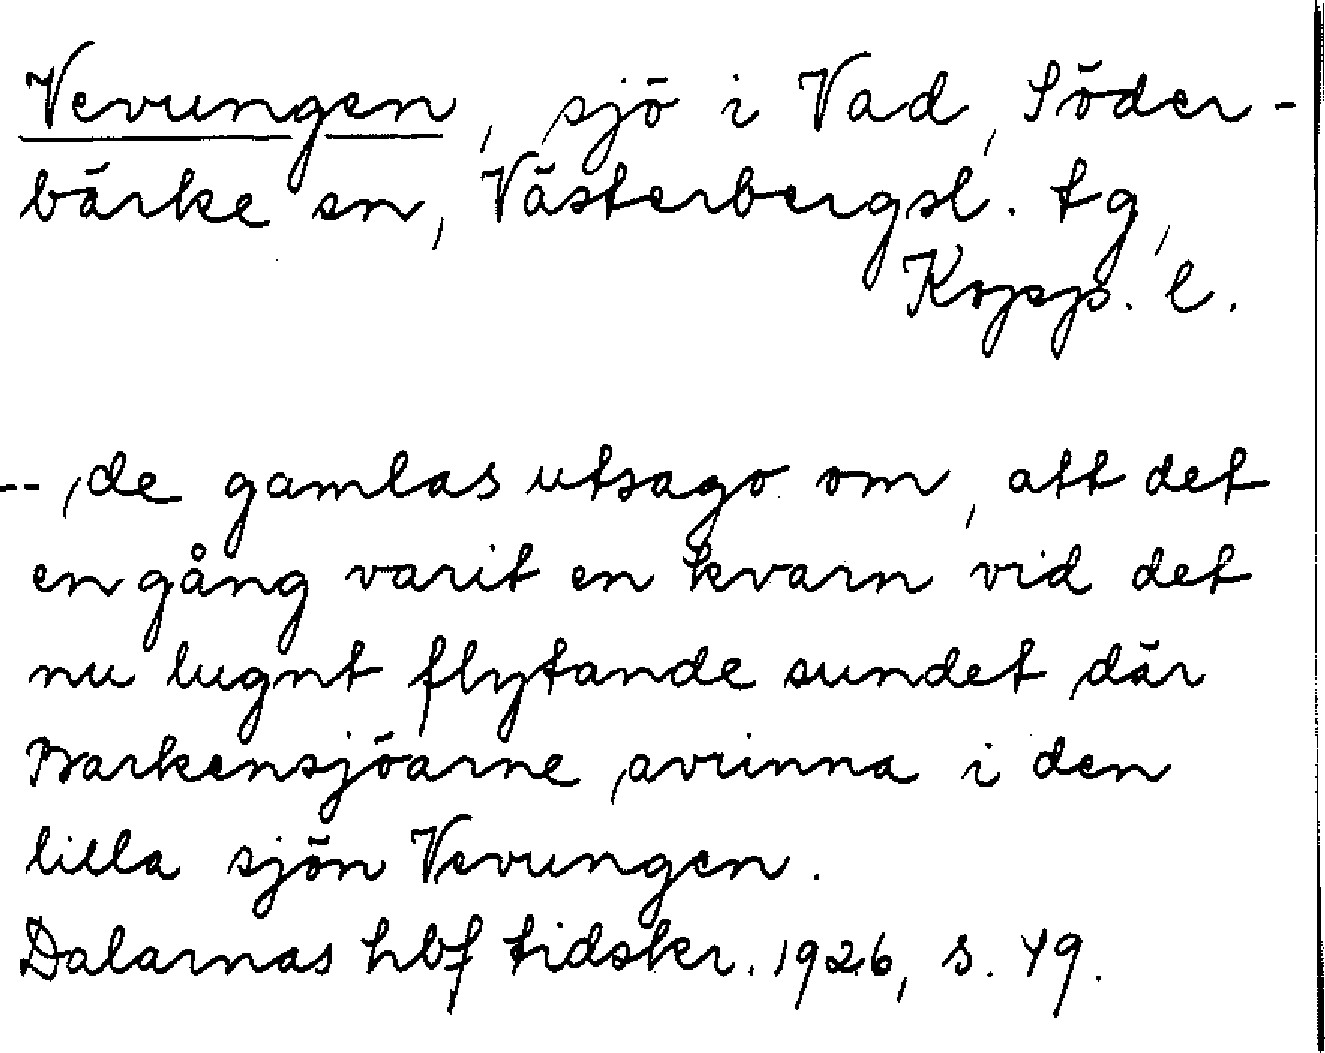 Vevungen, sjö i Vad, Söder-
bärke sn, Västerbergsl. tg,
Kopp. l.
-- de gamlas utsago om, att det
en gång varit en kvarn vid det
nu lugnt flytande sundet där
Barkensjöarne avrinna i den
lilla sjön Vevungen.
Dalarnas hbf tidskr. 1926, s. 49.